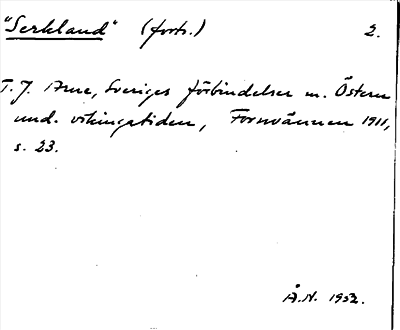 "Serkland" (forts.) 2.
T. J. Arne, Sveriges förbindelser m. Östern
und. vikingatiden, Fornvännen 1911,
s. 23.
Å.N. 1952.